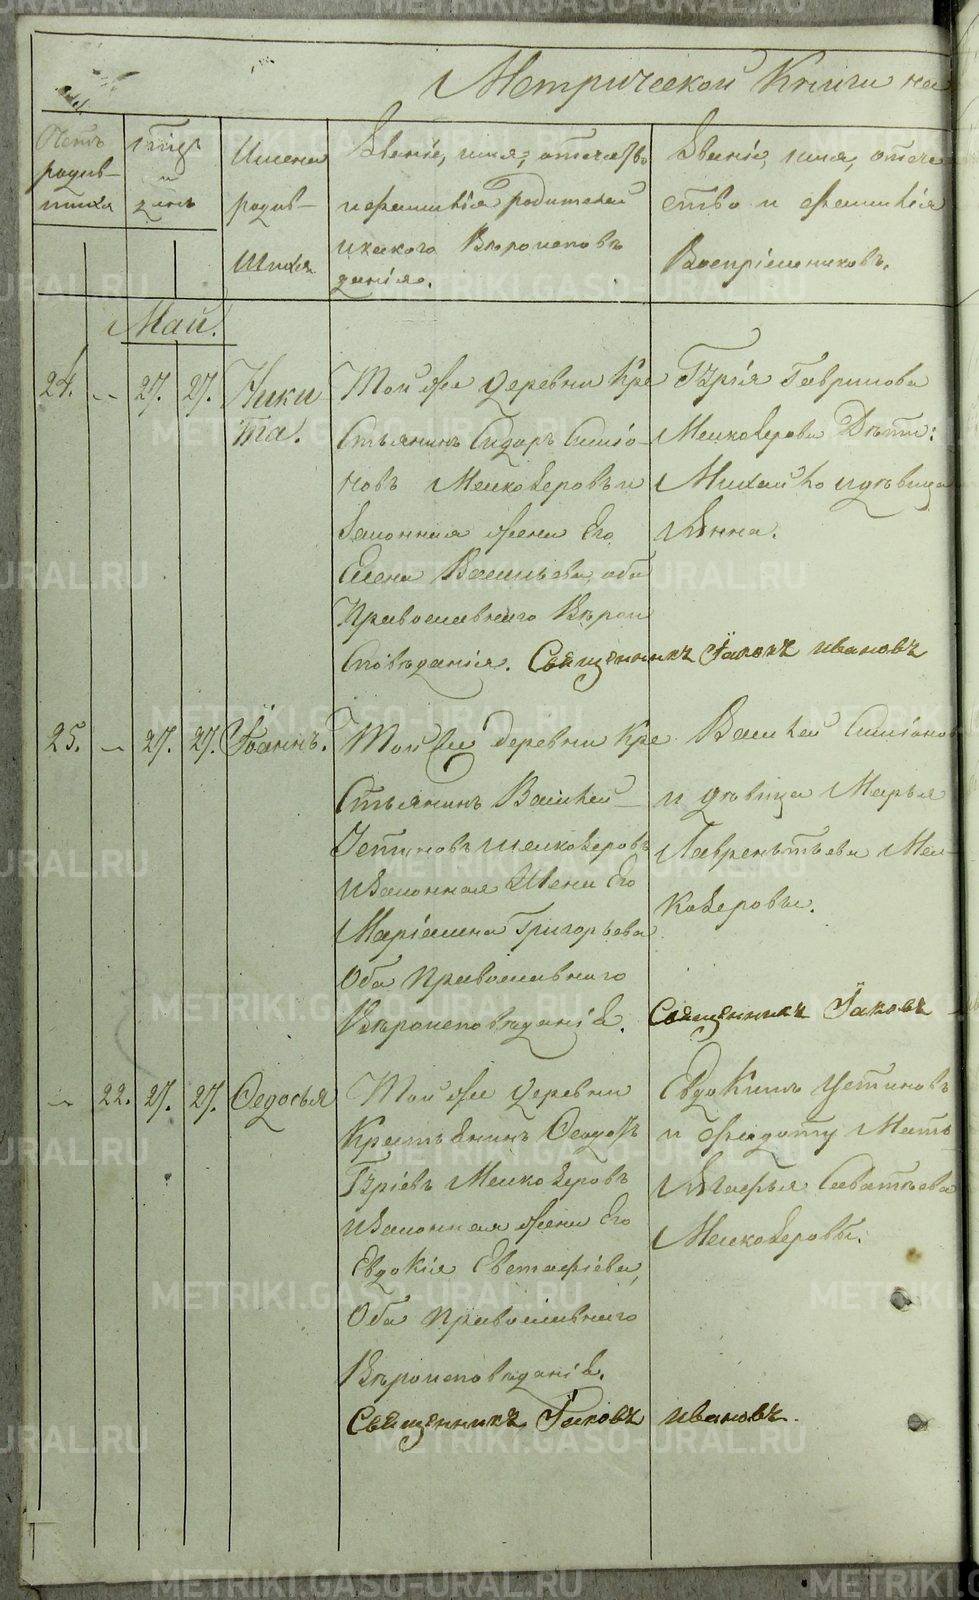 Метрической Книги на
Счетъ
родив-
шихся
Мѣсяц
и
день
Имена
родив-
шихся
Званіе, имя, отечество
и фамилія родителей
и какого Вѣроисповѣ
данія.
Званіе, имя, отече
ство и фамилія
Воспріемниковъ.
Май.
24. - 27. 27. Ники
та.
Той же деревни Кре
стьянинъ Сидоръ Симіо-
новъ Мелкозеровъ и
Законная жена Его
Елена Васильева, оба
Православнаго Вѣрои
сповѣданія. Священникъ Іаковъ Ивановъ
Гурія Гаврилова
Мелкозерова Дѣти:
Михайло и дѣвица
Анна.
25. - 27. 27. Іоаннъ.
Той же деревни Кре
стьянинъ Василей
Устиновъ Мелкозеровъ
и Законная Жена Его
Маріамна Григорьева
Оба Православнаго
Вѣроисповѣданія.
Василей Симіонов
и дѣвица Марья
Лаврентьева Мел-
козеровы.
Священникъ Іаковъ
- 22. 27. 27. Ѳедосья
Той же деревни
Крестьянинъ Ѳеодоръ
Гуріевъ Мелкозеровъ
и Законная жена Его
Евдокія Евстафіева,
Оба Православнаго
Вѣроисповѣданія.
Священникъ Іаковъ Ивановъ.
Евдокимъ Устиновъ
и Мать
Агафья Саватѣева
Мелкозеровы.
METRIKI.GASO-URAL.RU